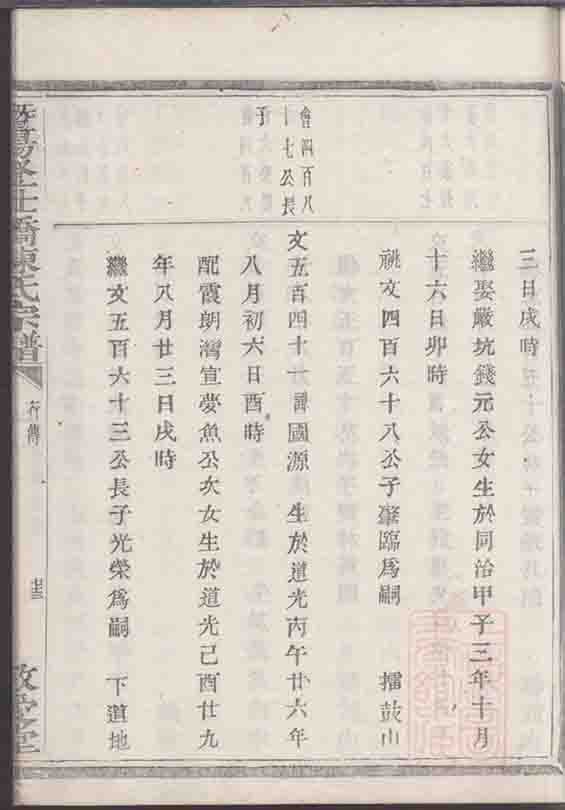 三日戌時
繼娶嚴坑錢元公女生於同治甲子三年十月
十六日卯時
祧文四百六十八公子肇臨爲嗣 擂鼓山
會四百八
十七公長
子
文五百四十一 國源 生於道光丙午廿六年
八月初六日酉時
配霞朗灣宣夢魚公次女生於道光己酉廿九
年八月廿三日戌時
繼文五百六十三公長子光榮爲嗣 下道地
暨陽 橋陳氏宗譜
行傳